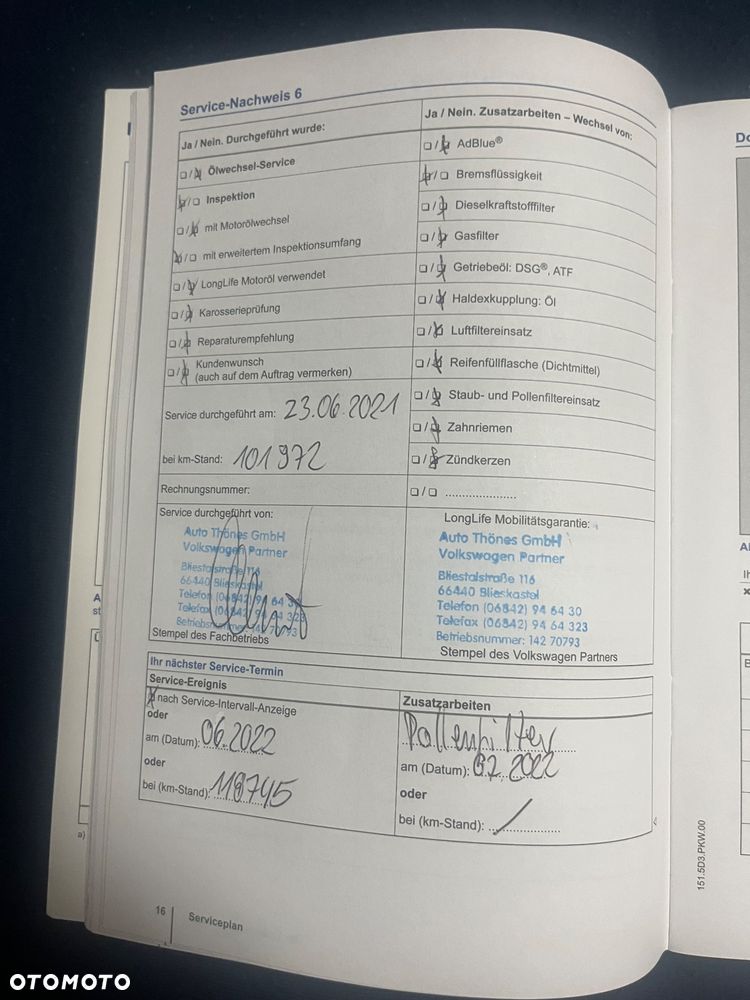 Service-Nachweis 6
Ja / Nein. Durchgeführt wurde:
□/□ Ölwechsel-Service
□/□ Inspektion
□/□ mit Motorölwechsel
□/□ mit erweitertem Inspektionsumfang
□/□ LongLife Motoröl verwendet
□/□ Karosserieprüfung
□/□ Reparaturempfehlung
□/□ Kundenwunsch
(auch auf dem Auftrag vermerken)
Service durchgeführt am: 23.06.2021
bei km-Stand: 101972
Rechnungsnummer:
Ja / Nein. Zusatzarbeiten – Wechsel von:
□/□ AdBlue®
□/□ Bremsflüssigkeit
□/□ Dieselkraftstofffilter
□/□ Gasfilter
□/□ Getriebeöl: DSG®, ATF
□/□ Haldexkupplung: Öl
□/□ Luftfiltereinsatz
□/□ Reifenfüllflasche (Dichtmittel)
□/□ Staub- und Pollenfiltereinsatz
□/□ Zahnriemen
□/□ Zündkerzen
□/□ ......................
Service durchgeführt von:
Auto Thönes GmbH
Volkswagen Partner
Bliestalstraße 116
66440 Blieskastel
Telefon (06842) 94 64 30
Telefax (06842) 94 64 323
Betriebsnummer: 142 70793
Stempel des Fachbetriebs
LongLife Mobilitätsgarantie:
Auto Thönes GmbH
Volkswagen Partner
Bliestalstraße 116
66440 Blieskastel
Telefon (06842) 94 64 30
Telefax (06842) 94 64 323
Betriebsnummer: 142 70793
Stempel des Volkswagen Partners
Ihr nächster Service-Termin
Service-Ereignis
nach Service-Intervall-Anzeige
oder
am (Datum): 06.2022
oder
bei (km-Stand):
Zusatzarbeiten
Pollenfilter
am (Datum): 02.2022
oder
bei (km-Stand): ..................
16
Serviceplan
151.5D3.PKW.00
OTOMOTO